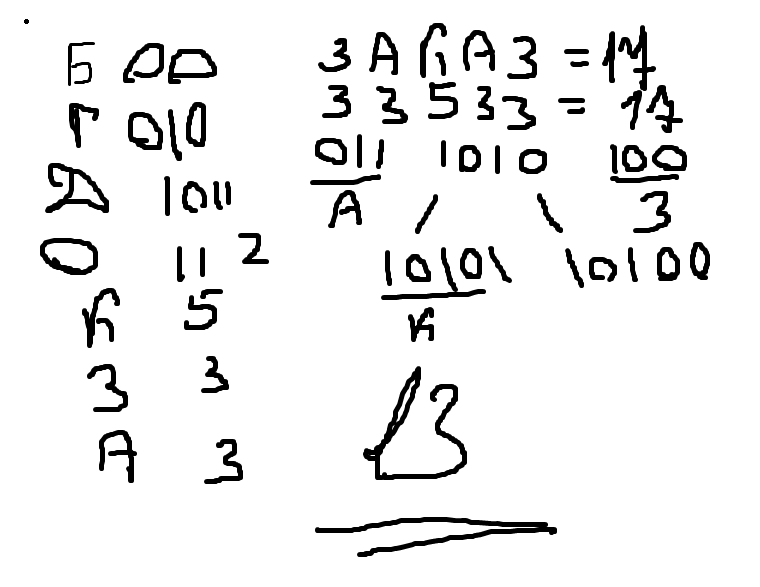 Б 00
Г 010
Д 1011
О 11 2
К 5
З 3
А 3
ЗАКАЗ = 17
33533 = 17
011 1010 100
А З
10101 10100
К